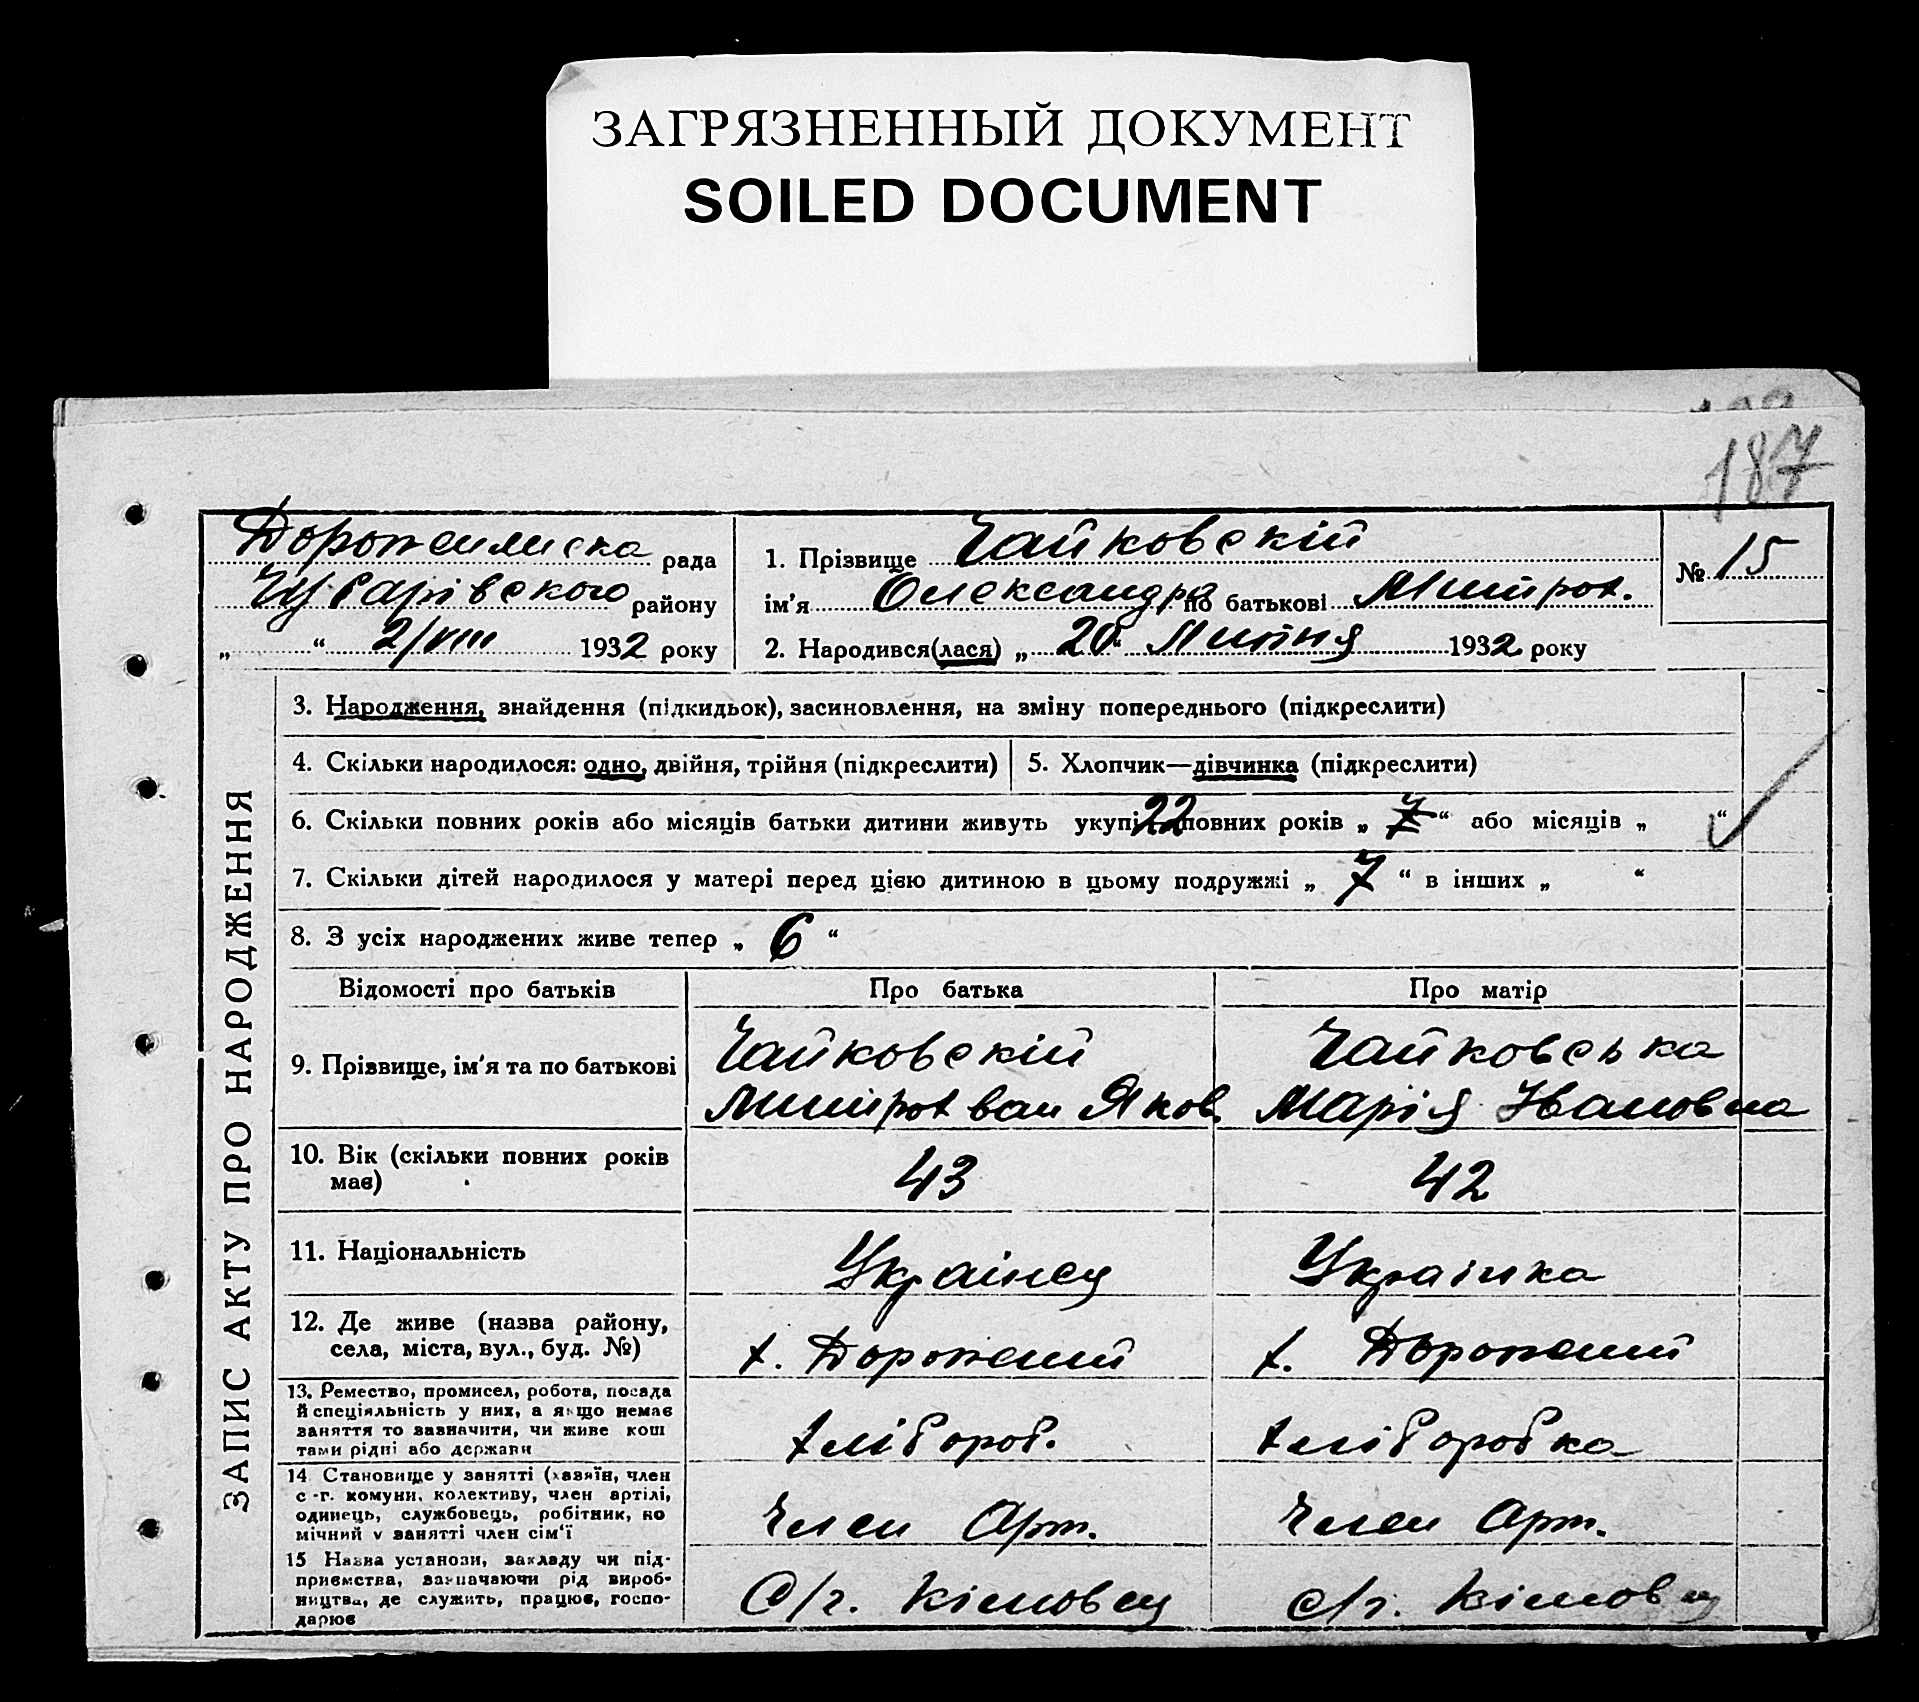 ЗАГРЯЗНЕННЫЙ ДОКУМЕНТ
SOILED DOCUMENT
187
рада
району
„ “ 2/VIII 1932 року
1. Прізвище Чайковскій
ім'я Олександра по батькові Митроф.
2. Народився(лася) „ 20 “ Липня 1932 року
№ 15
ЗАПИС АКТУ ПРО НАРОДЖЕННЯ
3. Народження, знайдення (підкидьок), засиновлення, на зміну попереднього (підкреслити)
4. Скільки народилося: одно, двійня, трійня (підкреслити)
5. Хлопчик—дівчинка (підкреслити)
6. Скільки повних років або місяців батьки дитини живуть укупі 22 повних років „ “ або місяців „ “
7. Скільки дітей народилося у матері перед цією дитиною в цьому подружжі „ 7 “ в інших „ “
8. З усіх народжених живе тепер „ 6 “
Відомості про батьків
Про батька
Про матір
9. Прізвище, ім'я та по батькові
Чайковскій
Митрофван Яков.
Чайковська
Марія Івановна
10. Вік (скільки повних років
має)
43
42
11. Національність
Українец
Українка
12. Де живе (назва району,
села, міста, вул., буд. №)
х. Дорожний
х. Дорожний
13. Ремество, промисел, робота, посада
й спеціяльність у них, а якщо немає
заняття то зазначити, чи живе кош
тами рідні або держави
хліборob.
хліборобка
14 Становище у занятті (хазяїн, член
с-г. комуни, колективу, член артілі,
одинець, службовець, робітник, по
мічний у занятті член сім'ї
Член Арт.
Член Арт.
15 Назва установи, закладу чи під-
приємства, зазначаючи рід вироб-
ництва, де служить, працює, госпо-
дарює
С/г. Кімовец
с/г. Кімовец